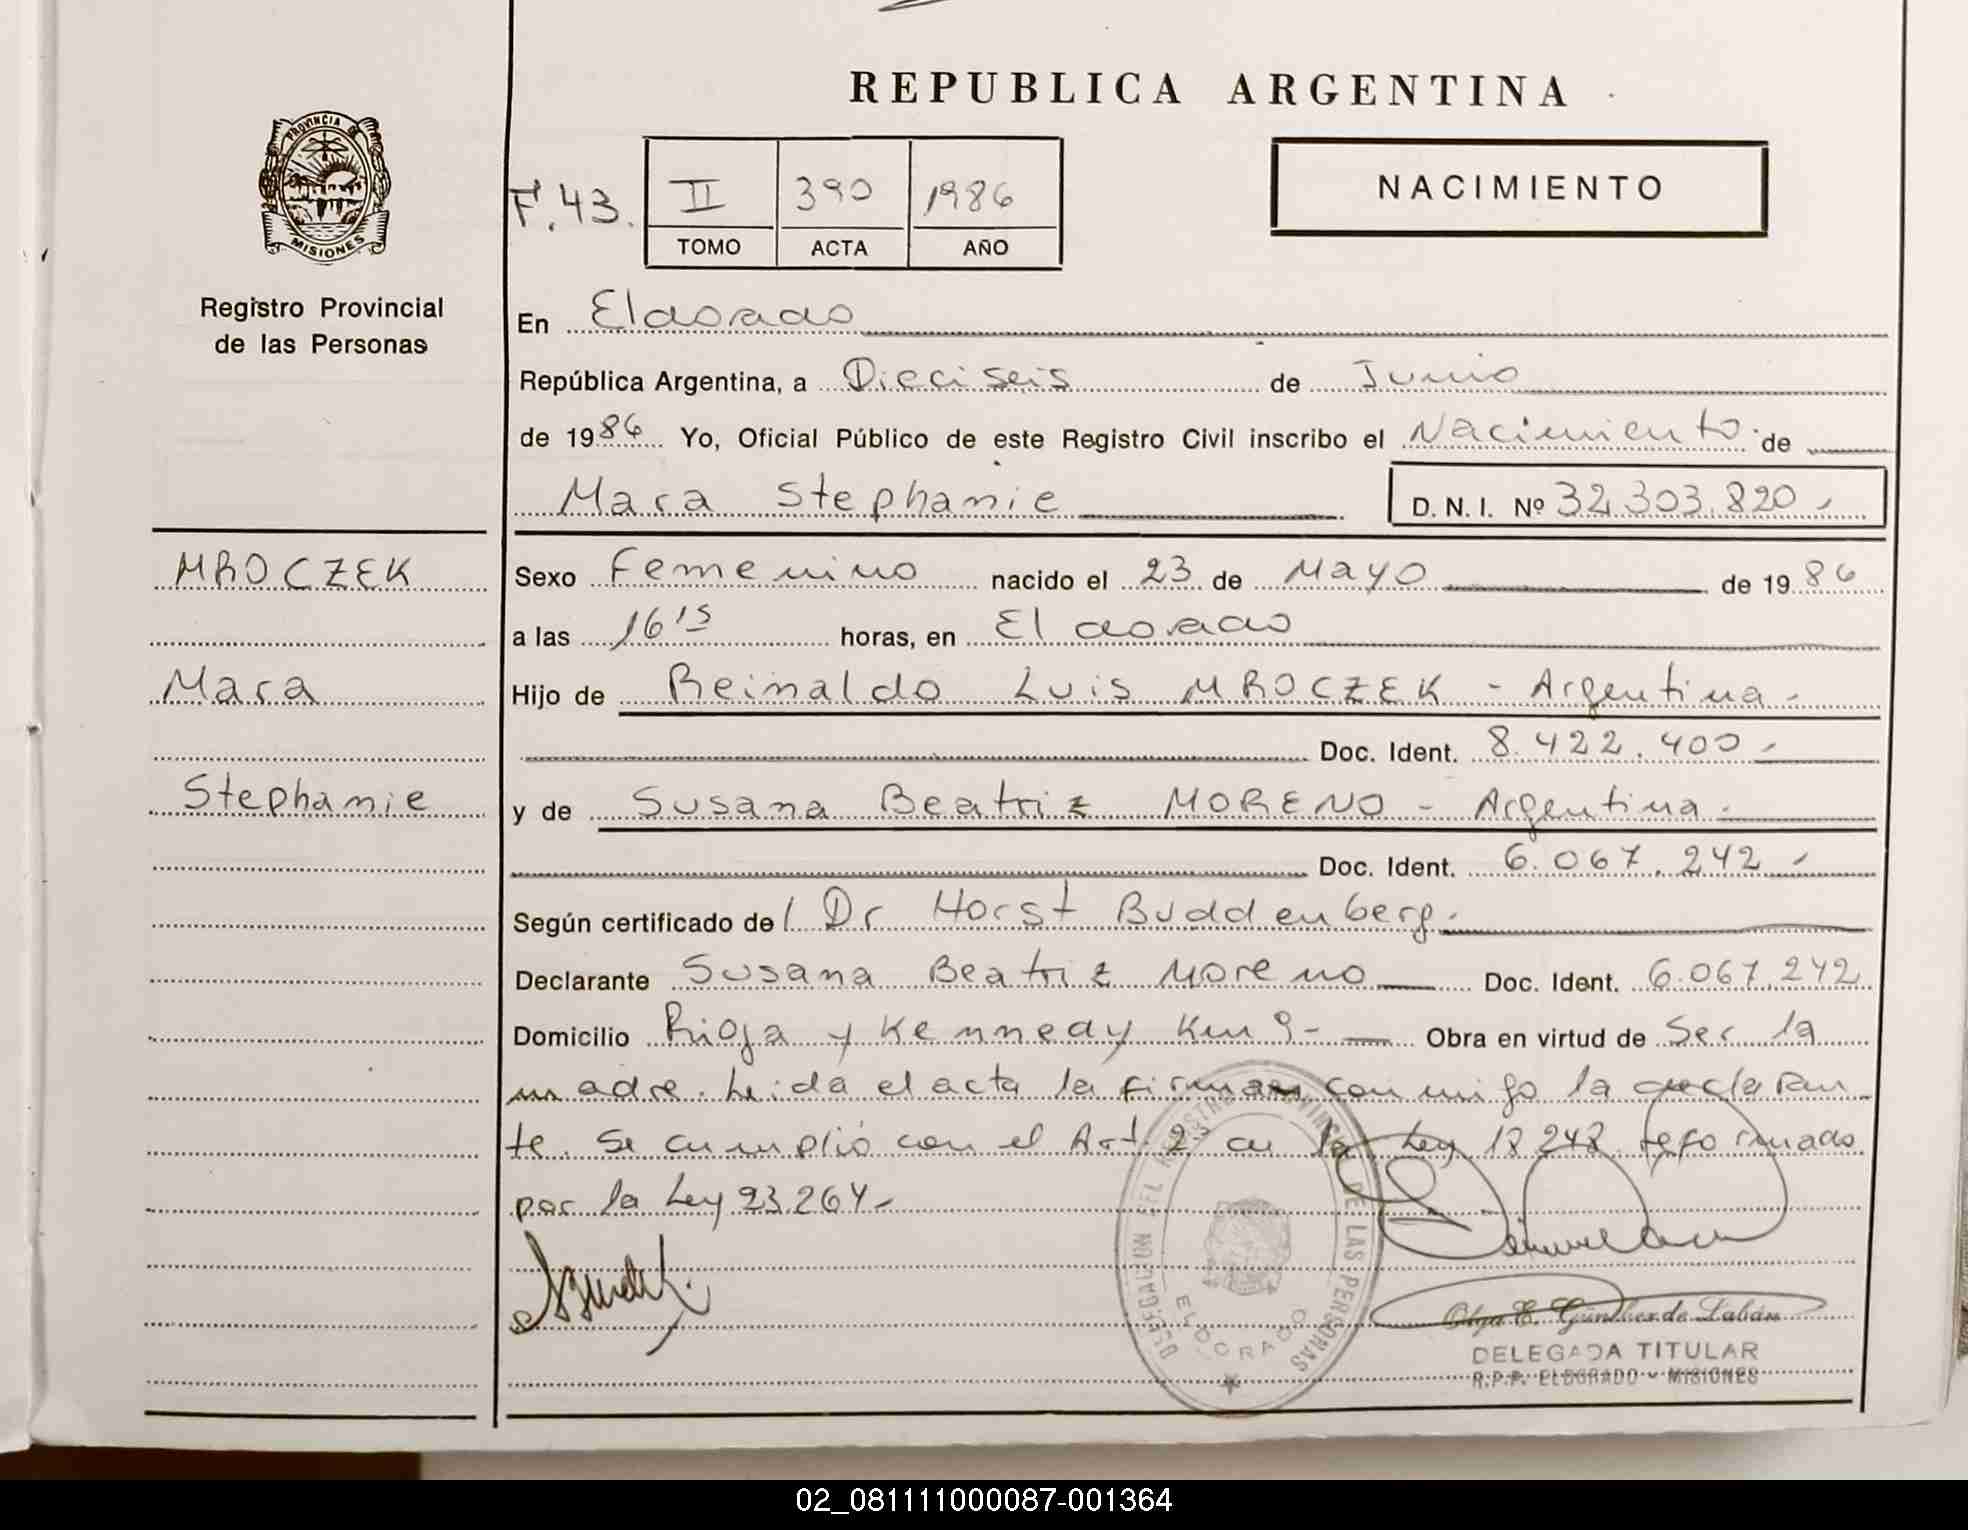 REPUBLICA ARGENTINA
PROVINCIA DE
MISIONES
Registro Provincial
de las Personas
F.43.
II 390 1986
TOMO ACTA AÑO
NACIMIENTO
En Eldorado
República Argentina, a Dieciseis de Junio
de 1986 Yo, Oficial Público de este Registro Civil inscribo el Nacimiento de
Mara Stephanie D. N. I. Nº 32,303,820
MROCZEK
Mara
Stephanie
Sexo Femenino nacido el 23 de Mayo de 1986
a las 16 15 horas, en El dorado
Hijo de Reinaldo Luis MROCZEK - Argentina -
Doc. Ident. 8.422.400 -
y de Susana Beatriz MORENO - Argentina -
Doc. Ident. 6.067.242 -
Según certificado de/ Dr Horst Buddenberg.
Declarante Susana Beatriz Moreno Doc. Ident. 6.067.242
Domicilio Rioja y Kennedy Km 9 - Obra en virtud de Ser la
madre. Leida el acta la firma conmigo la declaran
te. Se cumplió con el Art. 2 de la Ley 18248 reformado
por la Ley 23.264 -
DELEGACION DEL REGISTRO PROVINCIAL DE LAS PERSONAS
ELDORADO
Olga E. Günther de Labán
DELEGADA TITULAR
R.P.P. ELDORADO - MISIONES
02_081111000087-001364